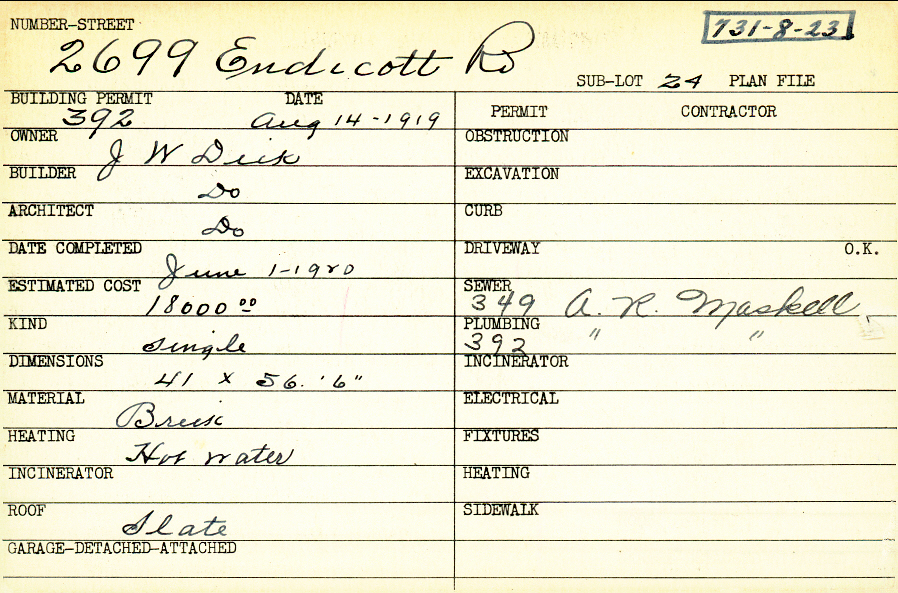 NUMBER-STREET
731-8-23
2699 Endicott Rd
SUB-LOT 24 PLAN FILE
BUILDING PERMIT DATE
392 Aug 14-1919
OWNER
J W Dick
BUILDER
Do
ARCHITECT
Do
DATE COMPLETED
June 1-1920
ESTIMATED COST
18000 00
KIND
Single
DIMENSIONS
41 x 56.'6"
MATERIAL
Brick
HEATING
Hot water
INCINERATOR
ROOF
Slate
GARAGE-DETACHED-ATTACHED
PERMIT CONTRACTOR
OBSTRUCTION
EXCAVATION
CURB
DRIVEWAY O.K.
SEWER
349 A. R. Maskell
PLUMBING
392 " "
INCINERATOR
ELECTRICAL
FIXTURES
HEATING
SIDEWALK